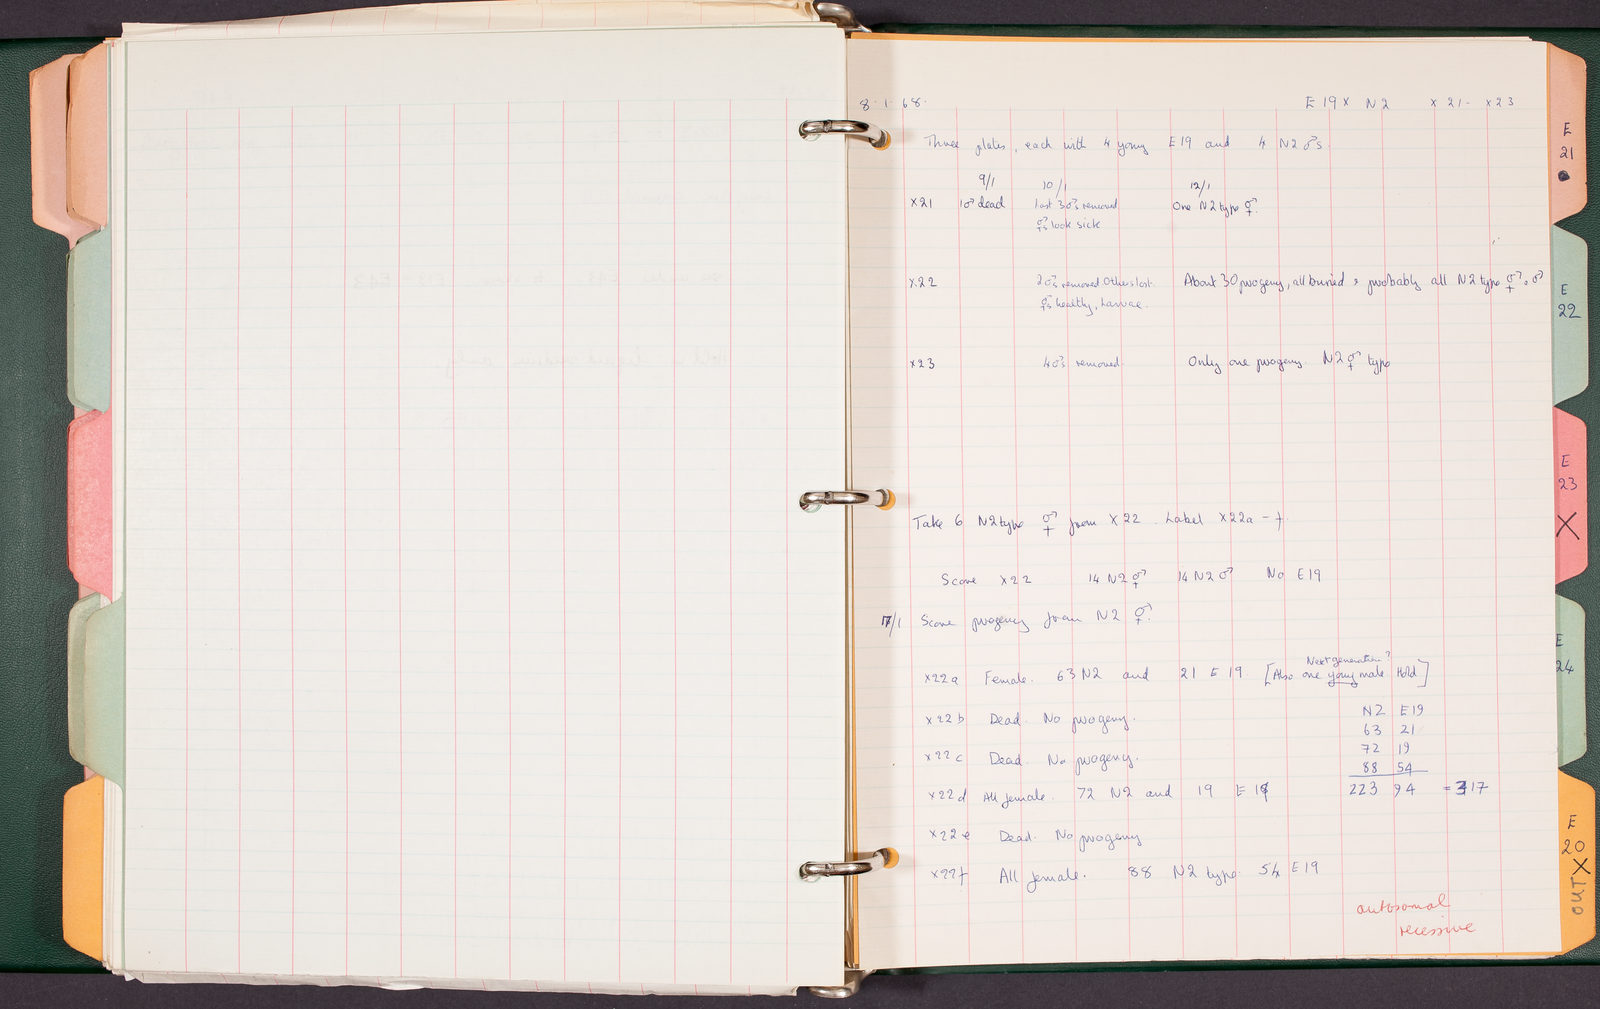 8.1.68. E19 x N2 x21- x23
Three plates, each with 4 young E19 and 4 N2 ♂s.
9/1 10/1 12/1
x21 1♂ dead Last 3♂s removed One N2 type ⚥.
⚥s look sick
x22 2♂s removed. Others lost. About 30 progeny, all buried & probably all N2 type ⚥, ♂
⚥s healthy, Larvae.
x23 4♂s removed. Only one progeny. N2 ⚥ type
Take 6 N2 type ⚥ from x22. Label x22a - f.
Score x22 14 N2 ⚥ 14 N2 ♂ No E19
17/1 Score progeny from N2 ⚥.
Next generation?
x22a Female. 63 N2 and 21 E19 [Also one young male Hold]
N2 E19
x22b Dead. No progeny.
63 21
72 19
x22c Dead. No progeny.
88 54
223 94 = 317
x22d All female. 72 N2 and 19 E19
x22e Dead. No progeny
x22f All female. 88 N2 type 54 E19
autosomal
recessive
E
21
E
22
E
23
X
E
24
E
20
X
OUT